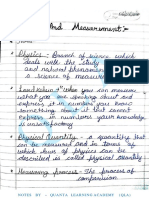 And Measurement:-
• Physics - Branch of science which
deals with the study
of natural phenomena
a science of measure
• Lord Kelvin + When you can measure
what you are speaking and
express it in numbers you know
something about it
express in numbers your knowledge
is unsatisfactory
• Physical Quantity - a quantity that
can be measured and in terms of
which laws of physics can be
described is called physical quantity
• Measuring process - The process of
comparison
NOTES BY - QUANTA LEARNING ACADEMY (QLA)